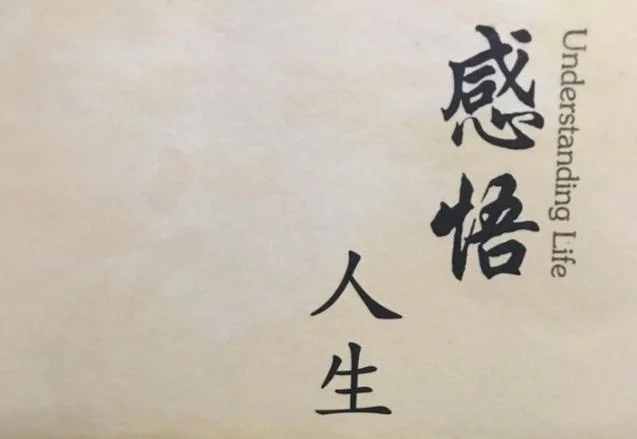 Understanding Life
感悟
人生